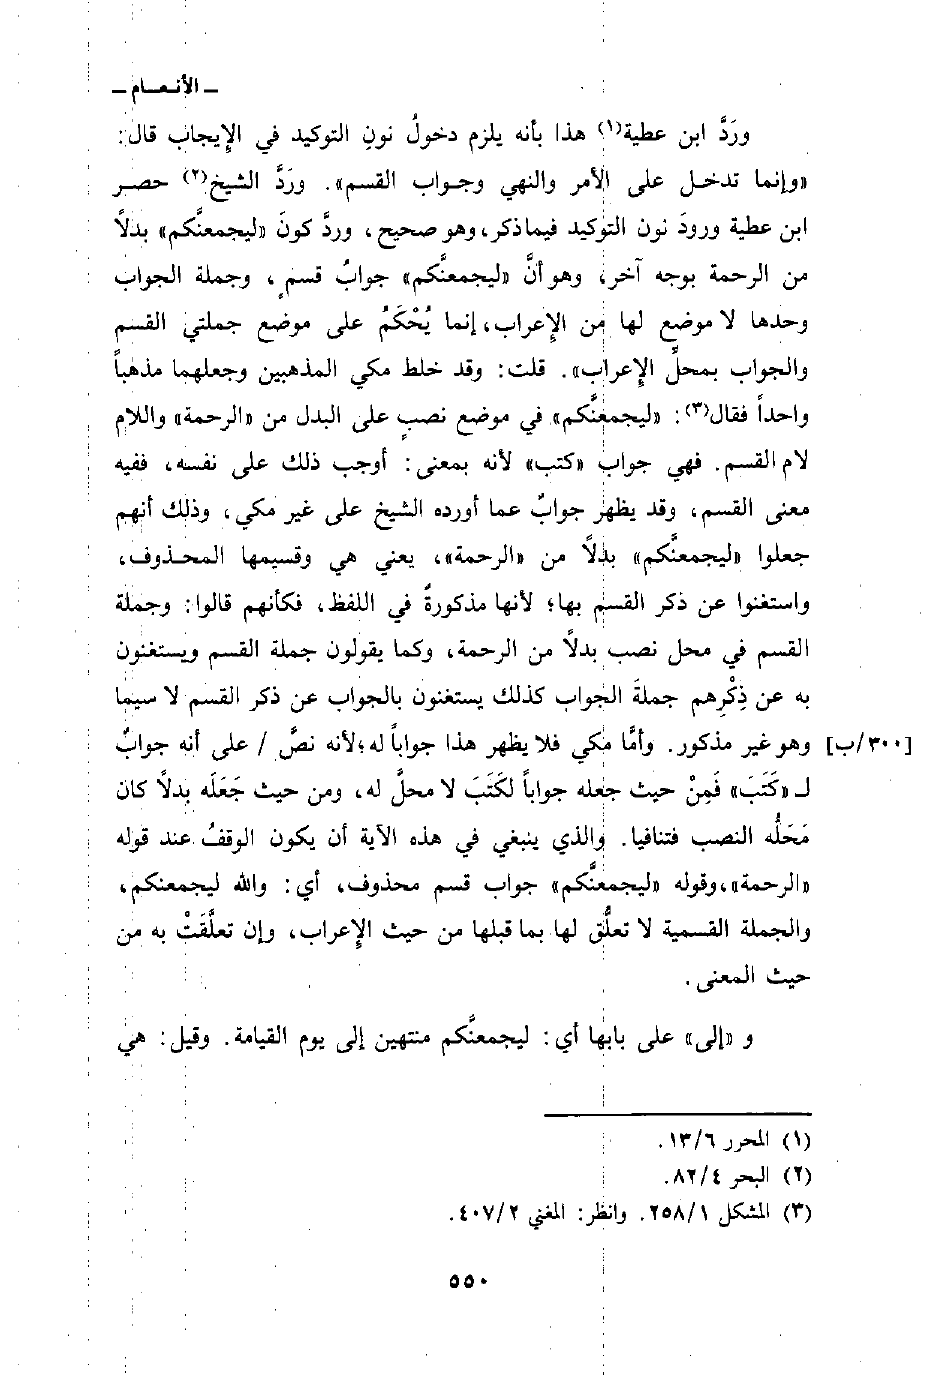 ـ الأنـعـام ـ
وردَّ ابن عطية(١) هذا بأنه يلزم دخولُ نونِ التوكيد في الإِيجاب قال:
«وإنما تدخل على الأمر والنهي وجواب القسم». وردَّ الشيخ(٢) حصر
ابن عطية ورودَ نون التوكيد فيما ذكر، وهو صحيح، وردَّ كونَ «ليجمعنَّكم» بدلاً
من الرحمة بوجه آخر، وهو أنَّ «ليجمعنَّكم» جوابُ قسمٍ، وجملة الجواب
وحدها لا موضع لها من الإِعراب، إنما يُحْكَمُ على موضع جملتي القسم
والجواب بمحلِّ الإِعراب». قلت: وقد خلط مكي المذهبين وجعلهما مذهباً
واحداً فقال(٣): «ليجمعنَّكم» في موضع نصبٍ على البدل من «الرحمة» واللام
لام القسم. فهي جواب «كتب» لأنه بمعنى: أوجب ذلك على نفسه، ففيه
معنى القسم، وقد يظهر جوابٌ عما أورده الشيخ على غير مكي، وذلك أنهم
جعلوا «ليجمعنَّكم» بدلاً من «الرحمة»، يعني هي وقسيمها المحذوف،
واستغنوا عن ذكر القسم بها؛ لأنها مذكورةٌ في اللفظ، فكأنهم قالوا: وجملة
القسم في محل نصب بدلاً من الرحمة، وكما يقولون جملة القسم ويستغنون
به عن ذِكْرِهم جملةَ الجواب كذلك يستغنون بالجواب عن ذكر القسم لا سيما
[٣٠٠/ب] وهو غير مذكور. وأمَّا مكي فلا يظهر هذا جواباً له؛ لأنه نصَّ / على أنه جوابٌ
لـ «كَتَبَ» فَمِنْ حيث جعله جواباً لكَتَبَ لا محلَّ له، ومن حيث جَعَلَه بدلاً كان
مَحَلُّه النصب فتنافيا. والذي ينبغي في هذه الآية أن يكون الوقفُ عند قوله
«الرحمة»، وقوله «ليجمعنَّكم» جواب قسم محذوف، أي: والله ليجمعنكم،
والجملة القسمية لا تعلُّق لها بما قبلها من حيث الإِعراب، وإن تعلَّقَتْ به من
حيث المعنى.
و «إلى» على بابها أي: ليجمعنَّكم منتهين إلى يوم القيامة. وقيل: هي
(١) المحرر ١٣/٦.
(٢) البحر ٨٢/٤.
(٣) المشكل ٢٥٨/١. وانظر: المغني ٤٠٧/٢.
٥٥٠